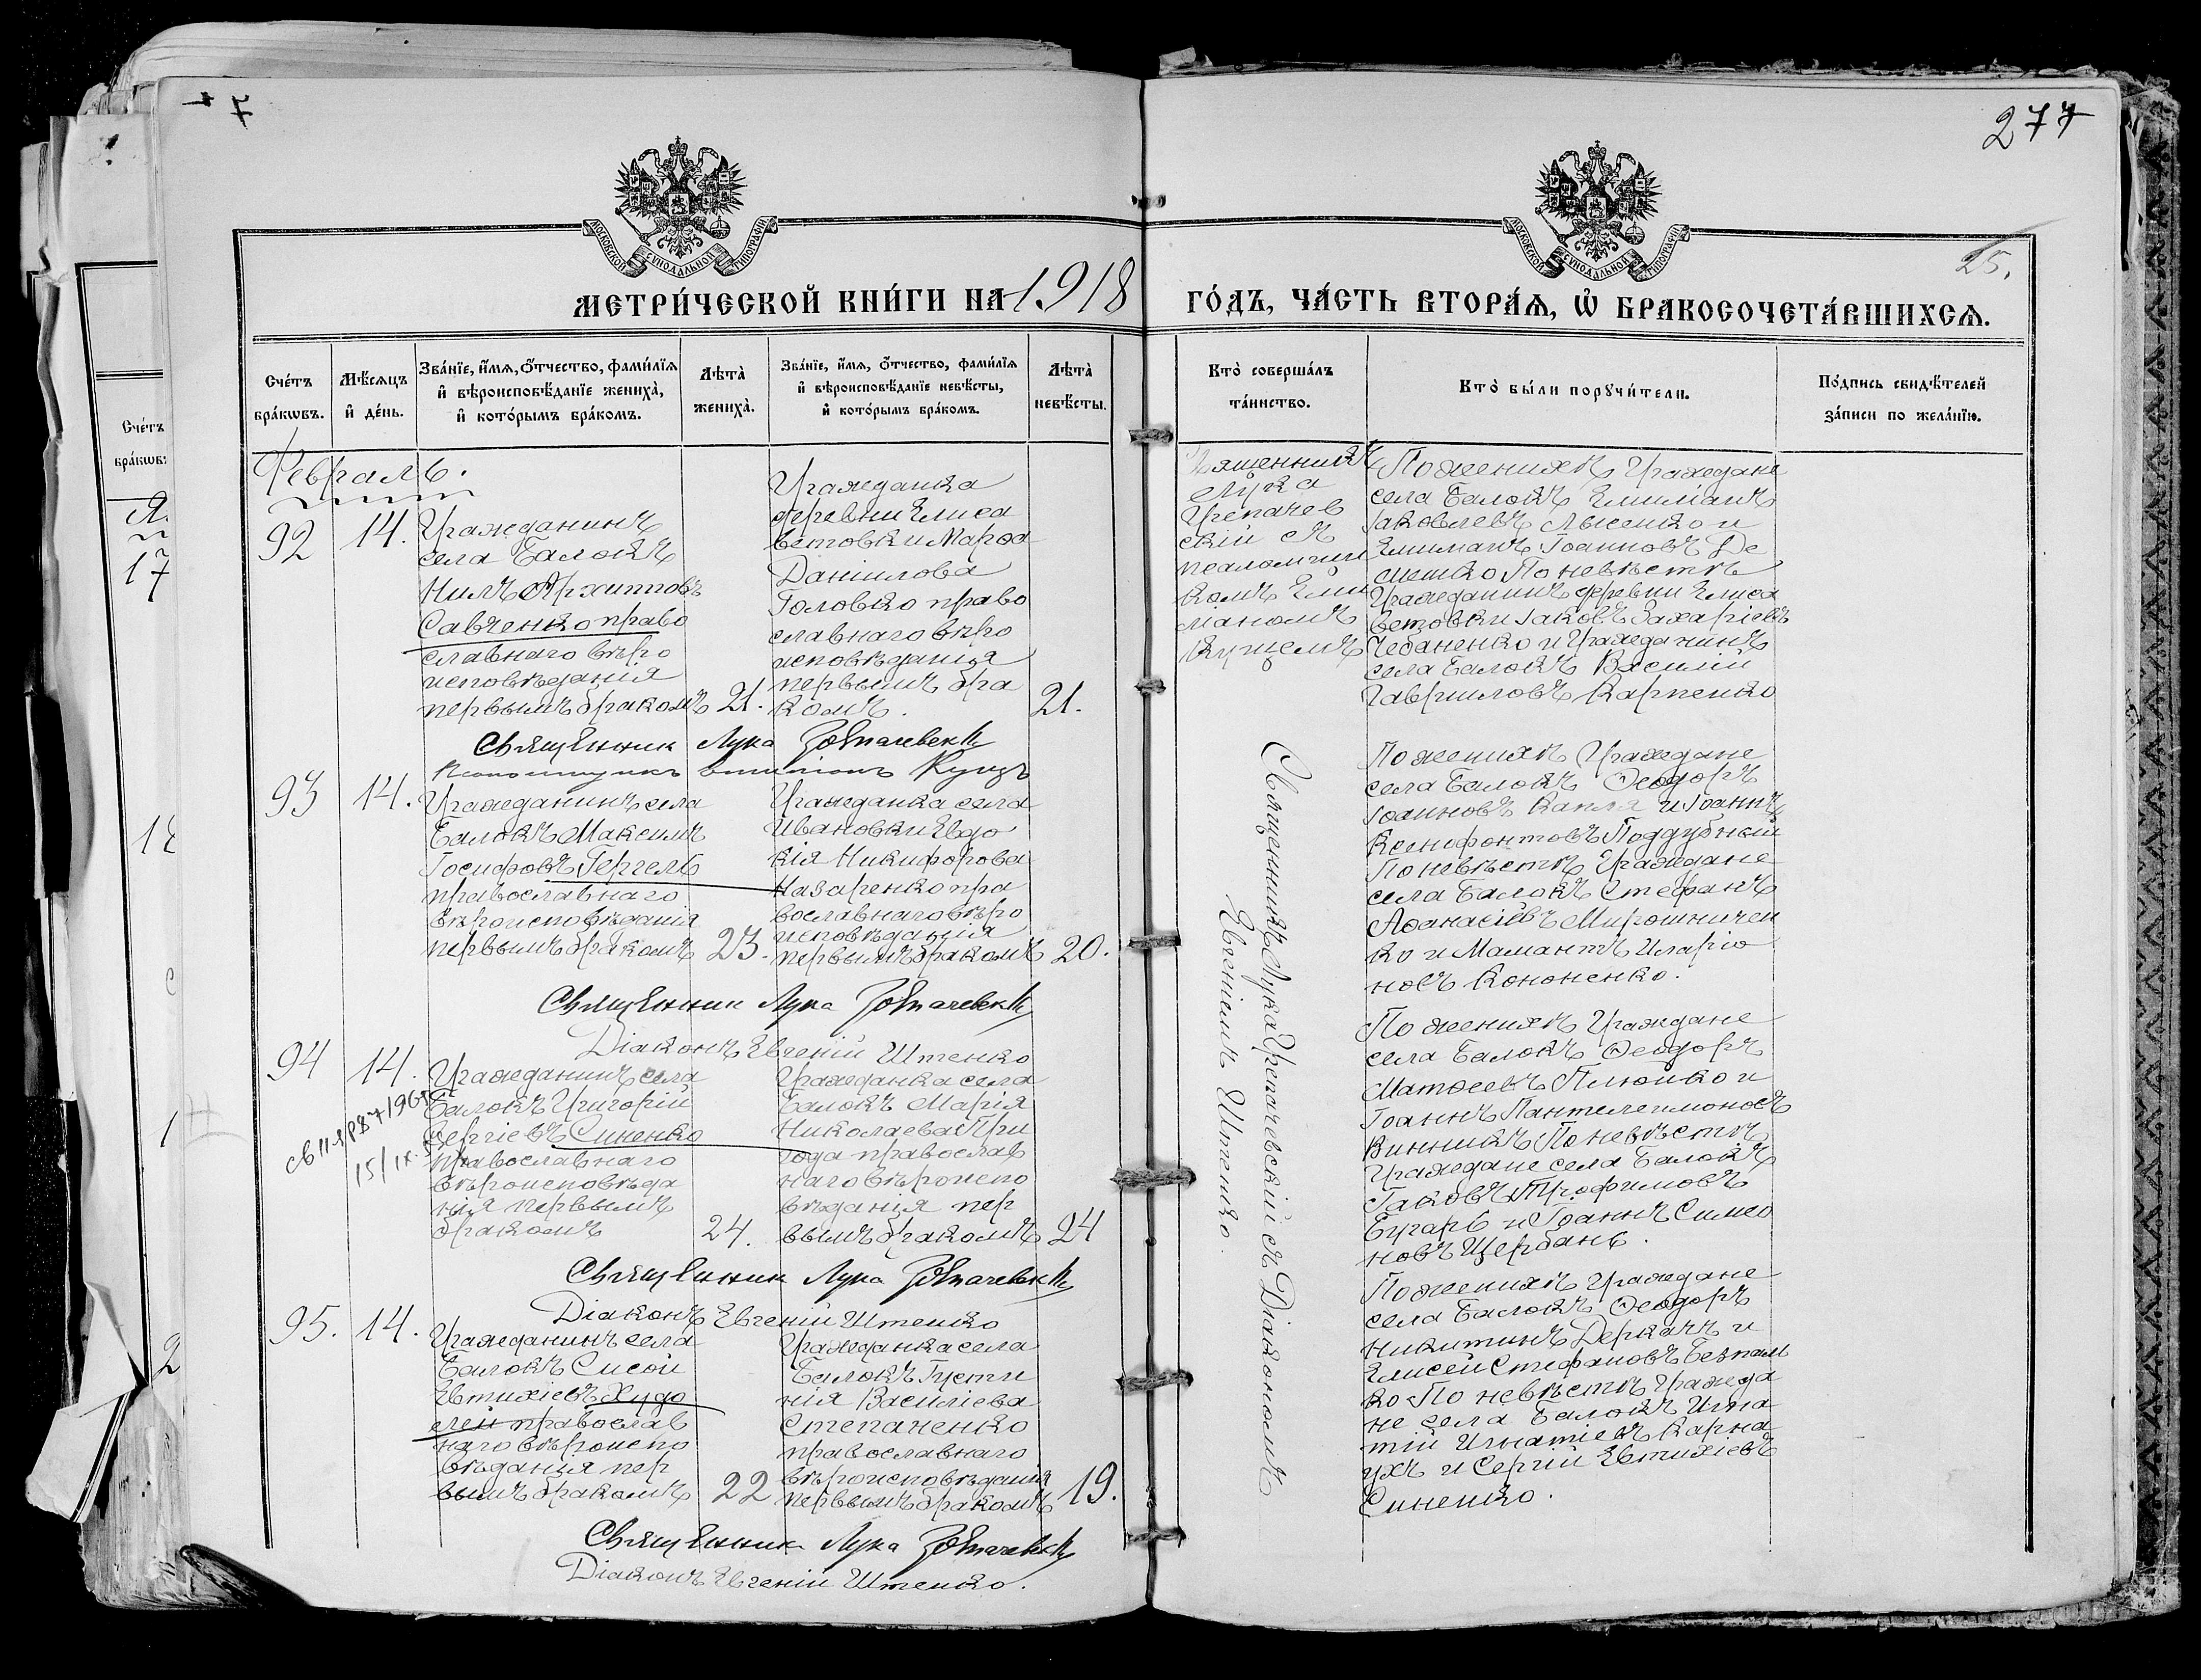 277
25.
МОСКОВСКОЙ СУНОДАЛЬНОЙ ТИПОГРАФIИ
МОСКОВСКОЙ СУНОДАЛЬНОЙ ТИПОГРАФIИ
МЕТРИ́ЧЕСКОЙ КНИ́ГИ НА 1918
ГО́ДЪ, ЧА́СТЬ ВТОРА́Я, Ѡ҆ БРАКОСОЧЕТА́ВШИХСЯ.
Сче́тъ бра́кѡвъ.
Мѣ́сяцъ и҆ де́нь.
Зва́нїе, и҆́мя, ѻ҆́тчество, фами́лїя
и҆ вѣроисповѣ́данїе жениха̀,
и҆ кото́рымъ бра́комъ.
Лѣта̀ жениха̀.
Зва́нїе, и҆́мя, ѻ҆́тчество, фами́лїя
и҆ вѣроисповѣ́данїе невѣ́сты,
и҆ кото́рымъ бра́комъ.
Лѣта̀ невѣ́сты.
Кто̀ соверша́лъ та́инство.
Кто̀ бы́ли порꙋчи́тели.
По́дпись свидѣ́телей за́писи по жела́нїю.
Февраль.
92
14.
Гражданинъ
села Балокъ
Нилъ Архиповъ
Савченко право
славнаго вѣро
исповѣданія
первымъ бракомъ
21.
Гражданка
деревни Елиса
ветовки Марѳа
Даніилова
Головко право
славнаго вѣро
исповѣданія
первымъ бра
комъ.
21.
Лука
скій съ
По женихѣ Граждане
села Балокъ Емиліанъ
Іаковлевъ Лысенко и
Емиліанъ Іоанновъ Де
менко По невѣстѣ
Гражданинъ деревни Елиса
ветовки Іаковъ Захаріевъ
Чебаненко и Гражданинъ
села Балокъ Василій
Гавриловъ Карпенко
Священник Лука
93
14.
Гражданинъ села
Балокъ Максимъ
Іосифовъ Гергель
православнаго
вѣроисповѣданія
первымъ бракомъ
23.
Гражданка села
Ивановки Евдо
кія Никифорова
Назаренко пра
вославнаго вѣро
исповѣданія
первымъ бракомъ
20.
По женихѣ Граждане
села Балокъ Ѳеодоръ
Іоанновъ Капля и Іоаннъ
Ксенофонтовъ Поддубный
По невѣстѣ Граждане
села Балокъ Стефанъ
Аѳанасіевъ Мирошничен
ко и Мамантъ Иларіо
новъ Кононенко.
Священник Лука
Діаконъ Евгеній Штенко
94
14.
Гражданинъ села
Балокъ Григорій
Сергіевъ Синенко
православнаго
вѣроисповѣда
нія первымъ
бракомъ
24.
Гражданка села
Балокъ Марія
Николаева При
года православ
наго вѣроиспо
вѣданія пер
вымъ бракомъ
24
По женихѣ Граждане
села Балокъ Ѳеодоръ
Матѳеевъ Плюйко и
Іоаннъ Пантелеимоновъ
Винникъ По невѣстѣ
Граждане села Балокъ
Іаковъ Трофимовъ
Бугаръ и Іоаннъ Симео
новъ Щербань.
Священник Лука
Діаконъ Евгеній Штенко
95.
14.
Гражданинъ села
Балокъ Сисой
Евтихіевъ Худо
лей православ
наго вѣроиспо
вѣданія пер
вымъ бракомъ
22
Гражданка села
Балокъ Іусти
нія Василіева
Степаненко
православнаго
вѣроисповѣданія
первымъ бракомъ
19.
По женихѣ Граждане
села Балокъ Ѳеодоръ
Никитинъ Деркачъ и
Елисей Стефановъ Безпаль
ко По невѣстѣ Гражда
не села Балокъ Игна
тій Игнатіевъ Карна
ухъ и Сергій Евтихіевъ
Синенко.
Священник Лука
Діаконъ Евгеній Штенко.
Евгеніемъ Штенко.